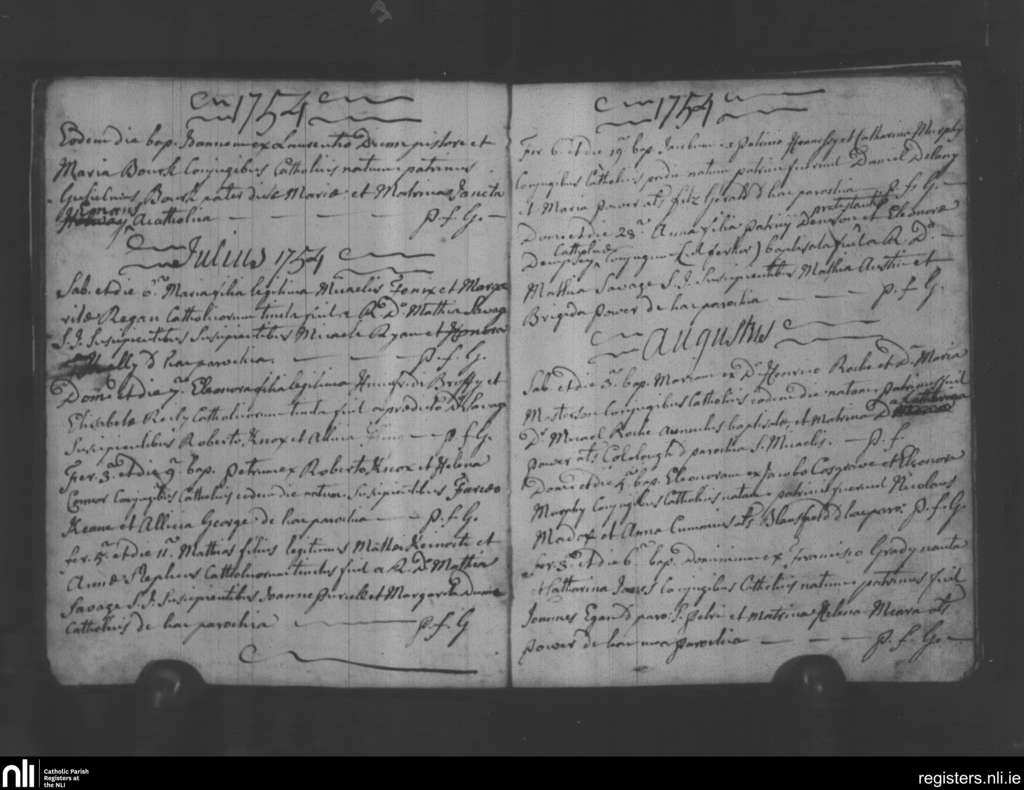 1754
Eodem die bap. Joannem ex Laurentio Dunn pistore et
Maria Bourk Conjugibus Catholicis natum patrinus
Gulielmus Bourk pater dictæ Mariæ et Matrina Sancta
Acatholica P. f. G.
Julius 1754
Sab. et die 6.º Maria filia legitima Micaelis Fenox et Marga
ritæ Regan Catholicorum tincta fuit a R.º D.º Mathia Savage
S.J. Suscipientibus Micaele Ryan et
Kelly d hac parochia. P. f. G.
Domc et die 7.º Eleonora filia legitima Humfridi Briffy et
Elisabetæ Reily Catholicorum tincta fuit a prædicto D. Savage
Suscipientibus Roberto Knox et Alicia P. f. G.
Fer. 3. et die 9.º bap. Petrum ex Roberto Knox et Helena
Connor Conjugibus Catholicis eodem die natum Suscipientibus
Keane et Allicia George de hac parochia P. f. G.
fer. 5.ª et die 11.º Mathias filius legitimus et
Annæ Stephens Catholicorum tinctus fuit a R.º D.º Mathia
Savage S.J. Suscipientibus Joanne Purick et Margarita Dunn
Catholicis de hac parochia P. f. G
1754
Fer. 6. et die 19.º bap. Jacobum ex Patricio Hennessy et Catharina Murphy
Conjugibus Catholicis natum patrini fuerunt Daniel Delany
et Maria Power als fitz Gerald d hac parochia P. f. G.
Domc et die 28.º Anna filia Patricij Dempsey protestantis et Eleonoræ
Dempsey Catholicæ Conjugum baptisata fuit a R. D.º
Mathia Savage S.J. Suscipientibus Mathia Austin et
Brigida Power de hac parochia P. f. G.
Augustus
Sab. et die 3.º bap. Mariam ex D.º Henrico Roche et D.ª Maria
Masterson Conjugibus Catholicis eodem die natam Patrinus fuit
D.º Micael Roche et Matrina D.
Power als Colclough d parochia S. Micaelis. P. f.
Domc et die 4.º bap. Eleonoram ex Jacobo Cosgrove et Eleonora
Murphy Conjugibus Catholicis natam patrini fuerunt Nicolaus
Madox et Anna Cumin als d hac paro: P. f. G.
fer. 3. et die 6.º bap. ex Francisco Grady nauta
et Catharina Jones Conjugibus Catholicis natum patrinus fuit
Joannes Egan d paro: S. Petri et Matrina Helena Meara als
Power de hac mea parochia P. f. G.
nli
Catholic Parish
Registers at
the NLI
registers.nli.ie